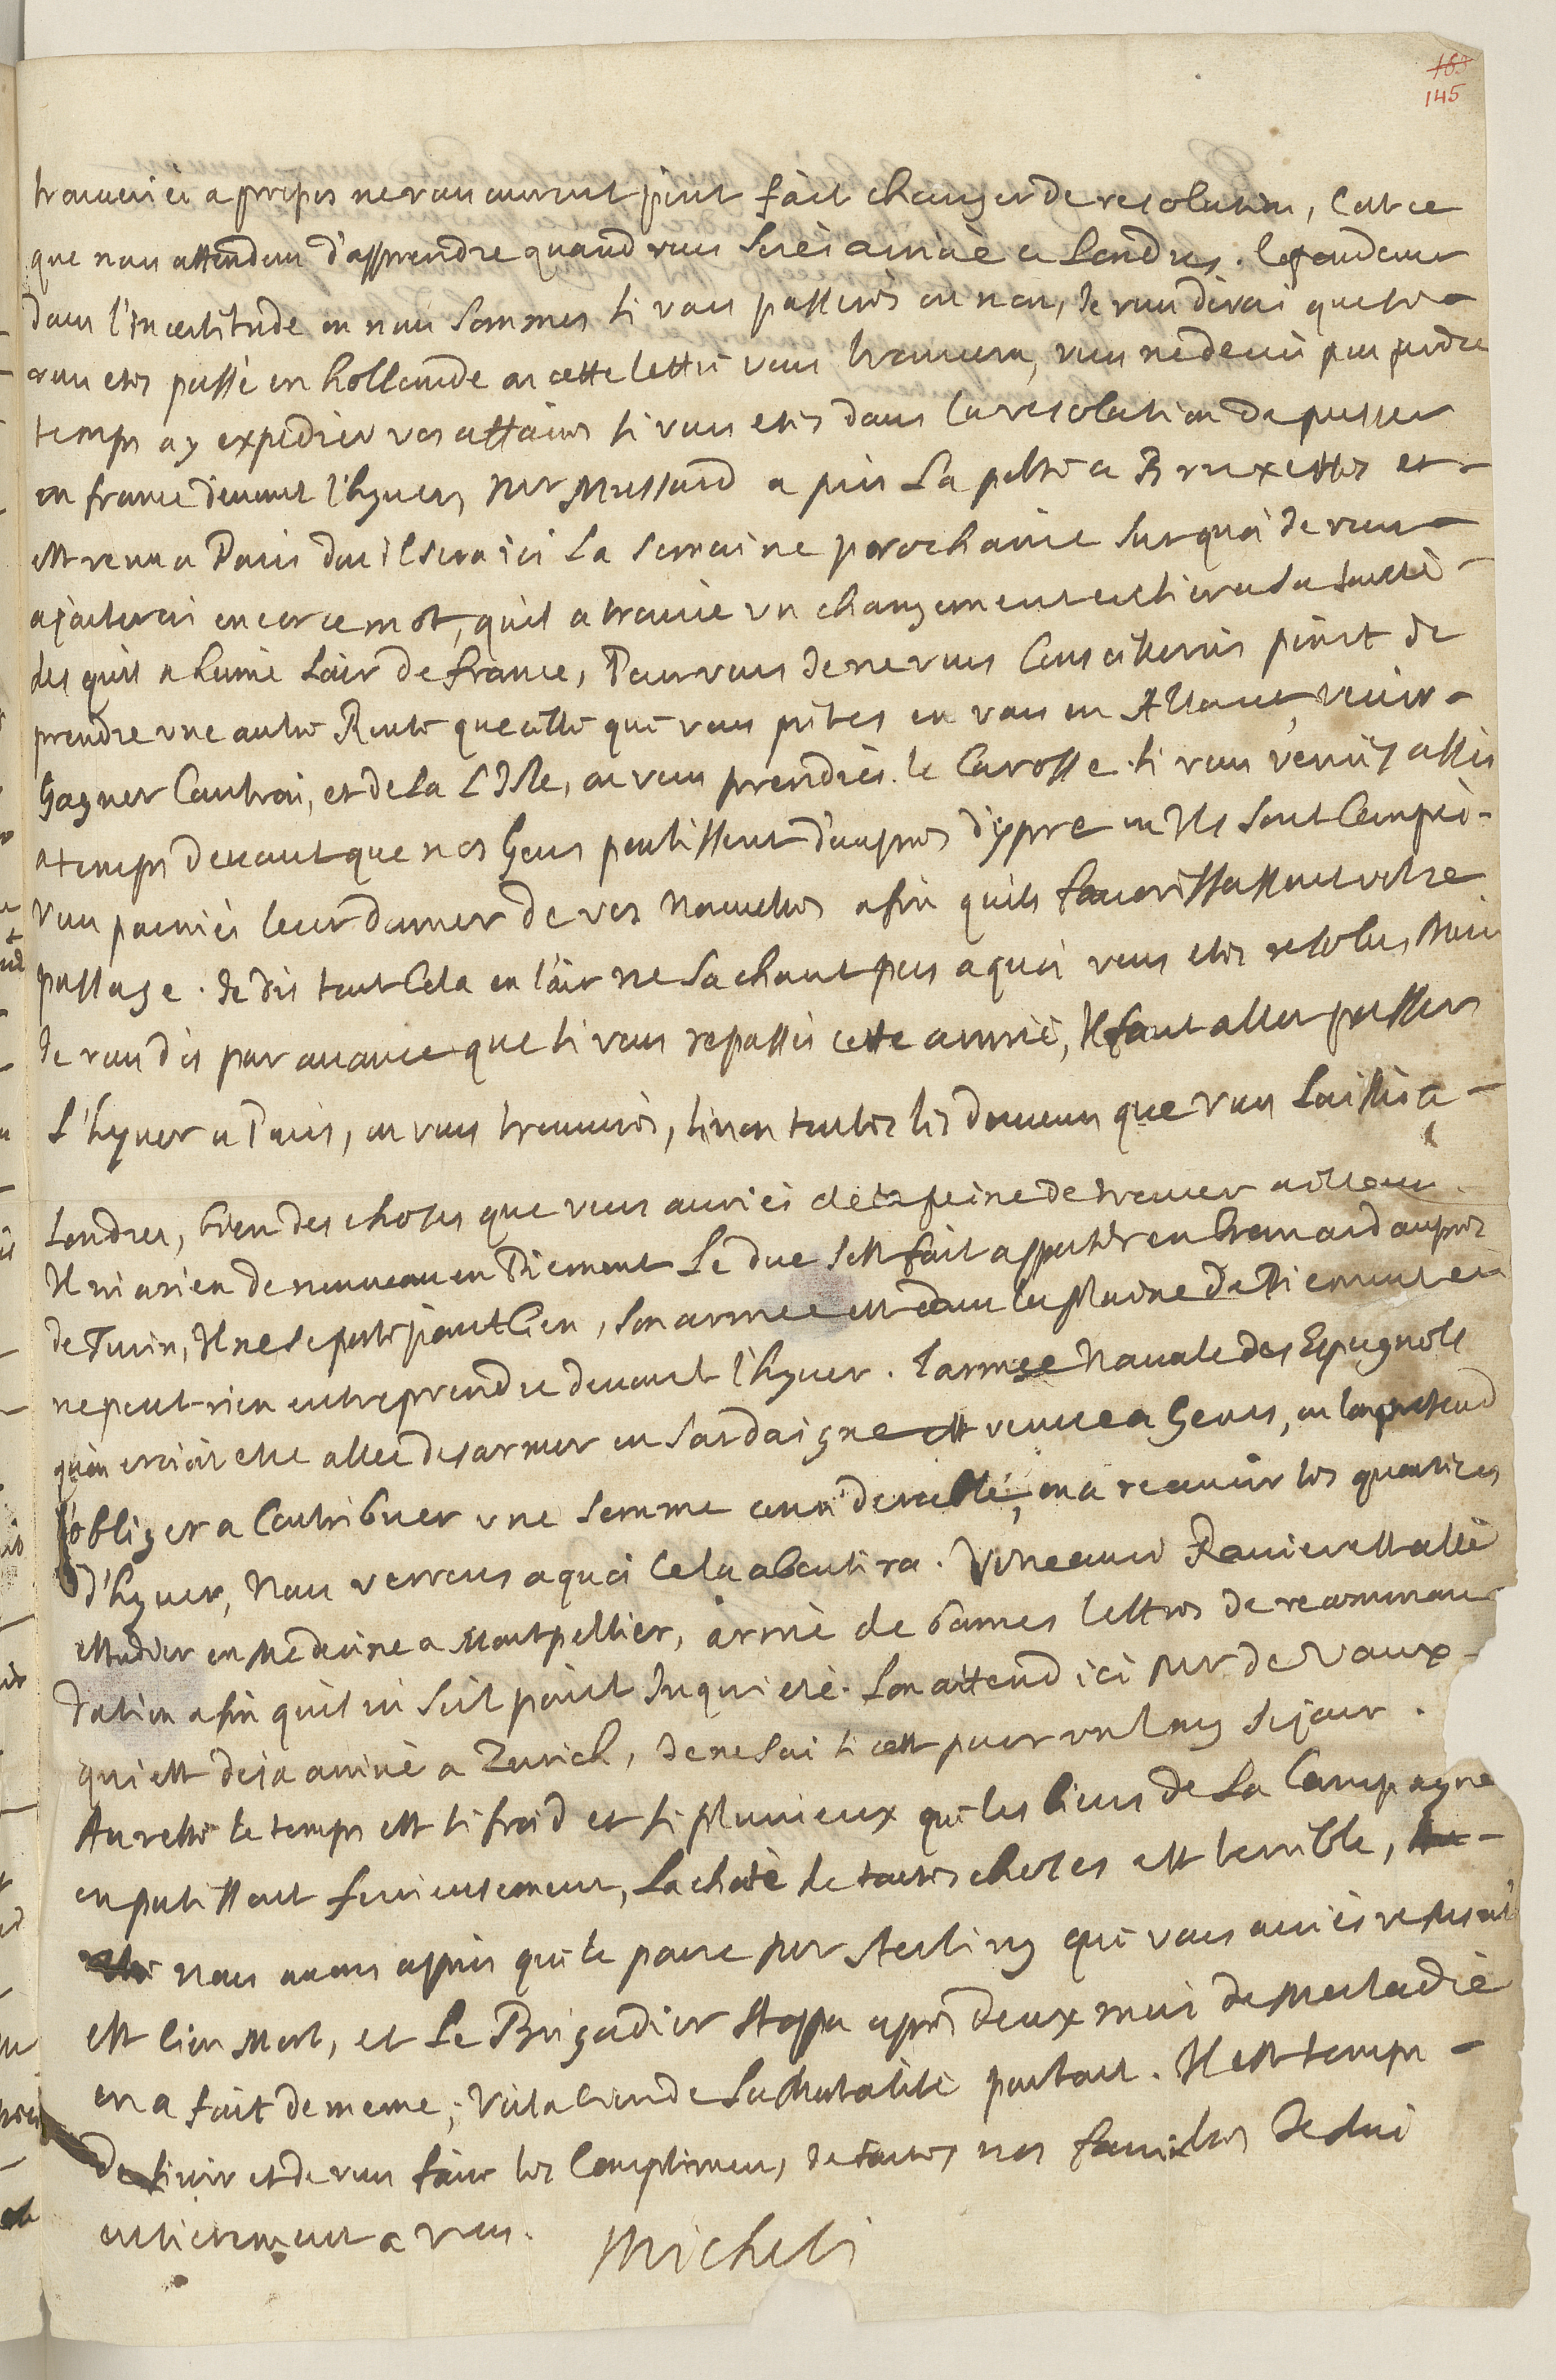 163
145
trouveriés a propos ne vous auront point fait changer de resolution, C'est ce
que nous attendons d'apprendre quand vous Serés arrivé a Londres. Cependant
dans l'Incertitude ou nous Sommes si vous passerés ou non, Je vous dirai que si
vous etes passé en hollande ou cette lettre vous trouvera, vous ne devés pas perdre
temps a y expedier vos affaires si vous etes dans la resolution de passer
en france devant l'hyver, Mr Mussard a pris La poste a Bruxelles et
est venu a Paris d'ou il sera ici La Semaine prochaine Sur quoi Je vous
ajouterai encor ce mot, qu'il a trouvé un changement entier a sa santé
des qu'il a humé L'air de france, Pour vous Je ne vous Conseillerois point de
prendre une autre Route que celle que vous prites en vous en Allant, venir
Gagner Courtrai, et de La L'Isle, ou vous prendriés le Carosse. si vous veniés assés
a temps devant que nos Gens partissent d'aupres d'ypre ou Ils sont Campés
vous pourriés leur donner de vos nouvelles afin quils favorissassent votre
passage. Je dis tout Cela en l'air ne Sachant pas a quoi vous etes resolu, Mais
Je vous dis par avance que si vous repassés cette année, Il faut aller passer
L'hyver a Paris, ou vous trouverés, sinon toutes les douceurs que vous Laissés a
Londres, bien des choses que vous auriés de la peine de trouver ailleurs.
Il ni a rien de nouveau en Piemont Le duc s'est fait apporter en brancard aupres
de Turin, Il ne se porte point bien, Son armee est dans la plaine de Piemont et
ne peut rien entreprendre devant l'hyver. L'armee Navale des Espagnols
qu'on croioit etre allee desarmer en Sardaigne est venue a Genes, ou l'on pretend
l'obliger a Contribuer une Somme considerable, ou a recevoir les quartiers
d'hyver, Nous verrons a quoi Cela aboutira. Votre ami est allé
ettudier en Medecine a Montpellier, armé de bonnes lettres de recomman
dation afin qu'il ni soit point Inquieté. L'on attend ici Mr de Vaux
qui est deja arrivé a Zurich, Je ne sai si cest pour un long sejour.
Au reste le temps est si froid et si pluvieux que les biens de La Campagne
en patissent furieusement, La cherté de toutes choses est terrible,
nous avons apris que le pauvre Mr Sterling que vous aviés
est bien Mort, et Le Brigadier Stoppa apres deux mois de Maladie
en a fait de meme; Voila bien de La Mortalité partout. Il est temps
de finir et de vous faire les Complimens, de toutes nos familles Je Suis
entierement a vous. Micheli